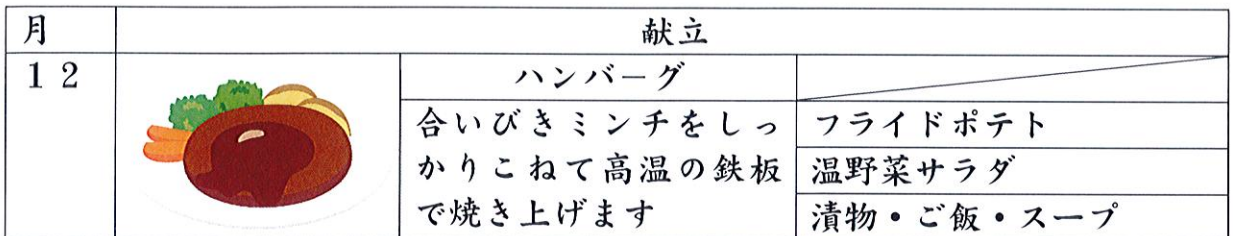 月 献立
１２
ハンバーグ
合いびきミンチをしっ
かりこねて高温の鉄板
で焼き上げます
フライドポテト
温野菜サラダ
漬物・ご飯・スープ